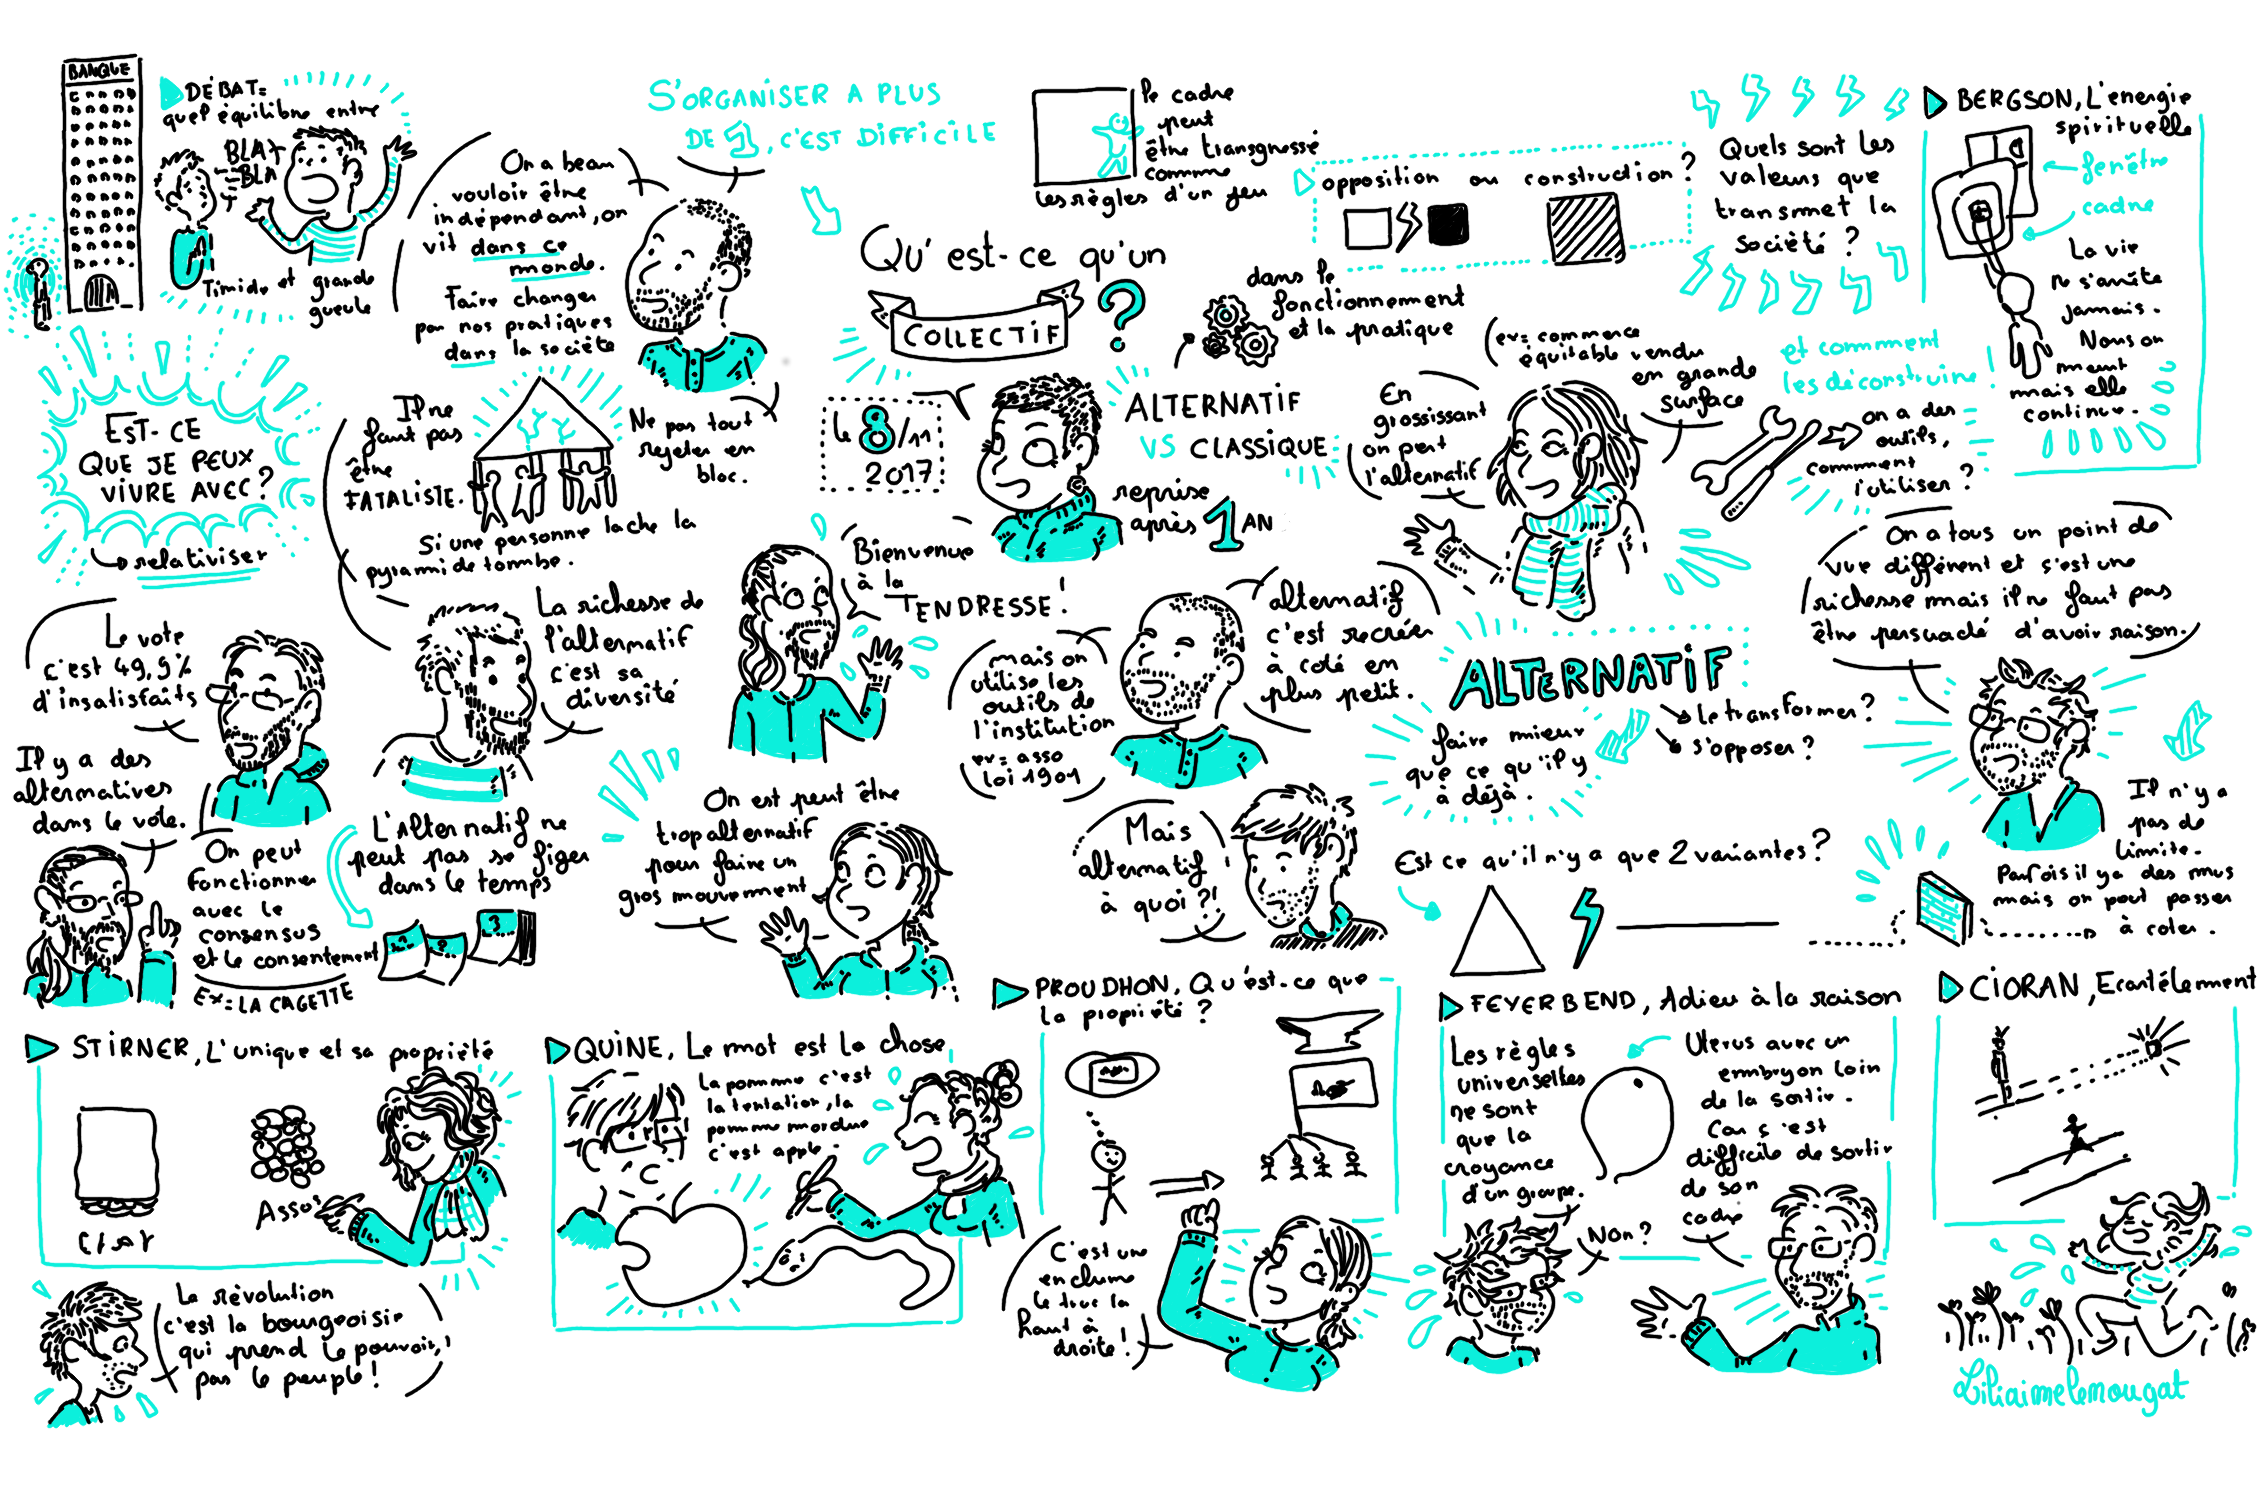 BANQUE
DÉBAT=
quel équilibre entre
BLA
BLA
Timide et grande
gueule
On a beau
vouloir être
indépendant, on
vit dans ce
monde.
Faire changer
par nos pratiques
dans la société
Ne pas tout
rejeter en
bloc.
S'ORGANISER A PLUS
DE 1, C'EST DIFFICILE
le cadre
peut
être transgressé
comme
les règles d'un jeu
opposition ou construction?
Quels sont les
valeurs que
transmet la
société ?
et comment
les déconstruire !
BERGSON, L'energie
spirituelle
fenêtre
cadre
La vie
ne s'arrête
jamais.
Nous on
meurt
mais elle
continue.
Qu'est-ce qu'un
COLLECTIF
?
le 8/11
2017
dans le
fonctionnement
et la pratique
ALTERNATIF
VS CLASSIQUE
reprise
après 1 AN
(ex= commerce
équitable vendu
en grande
surface
En
grossissant
on perd
l'alternatif
on a des
outils,
comment
l'utiliser ?
EST-CE
QUE JE PEUX
VIVRE AVEC?
relativiser
Il ne
faut pas
être
FATALISTE.
Si une personne lache la
pyramide tombe.
Le vote
c'est 49,9%
d'insatisfaits
Il y a des
alternatives
dans le vote.
On peut
fonctionner
avec le
consensus
et le consentement
EX= LA CAGETTE
La richesse de
l'alternatif
c'est sa
diversité
L'Alternatif ne
peut pas se figer
dans le temps
1
2
3
Bienvenue
à la
TENDRESSE!
mais on
utilise les
outils de
l'institution
ex= asso
loi 1901
alternatif
c'est recréer
à coté en
plus petit.
ALTERNATIF
faire mieux
que ce qu'il y
à déjà.
le transformer?
s'opposer?
On a tous un point de
vue différent et s'est une
richesse mais il ne faut pas
être persuadé d'avoir raison.
Il n'y a
pas de
limite.
Parfois il y a des murs
mais on peut passer
à coter.
On est peut être
trop alternatif
pour faire un
gros mouvement
Mais
alternatif
à quoi ?!
Est ce qu'il n'y a que 2 variantes?
STIRNER, L'unique et sa propriété
ETAT
Assos
La révolution
c'est la bourgeoisie
qui prend le pouvoir,
pas le peuple!
QUINE, Le mot est la chose
La pomme c'est
la tentation, la
pomme mordue
c'est apple.
PROUDHON, Qu'est-ce que
la propriété ?
C'est une
enclume
le truc la
haut à
droite!
FEYERBEND, Adieu à la raison
Les règles
universelles
ne sont
que la
croyance
d'un groupe.
Uterus avec un
embryon loin
de la sortie.
Car c'est
difficile de sortir
de son
cadre
Non?
CIORAN, Ecartélement
Liliaimelenougat